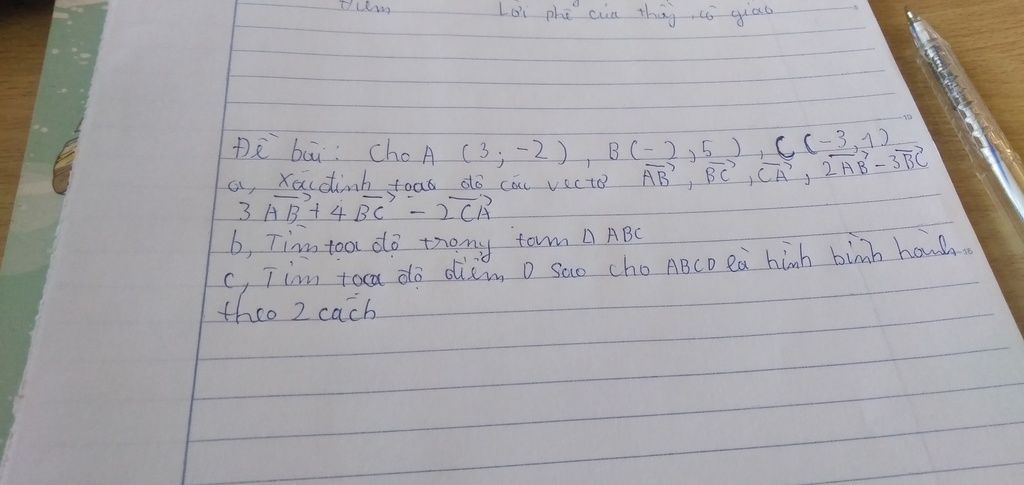 Điểm Lời phê của thầy, cô giáo
Đề bài: Cho A (3; -2), B(-2, 5), C(-3, 1)
a, Xác định toạ độ các vectơ AB, BC, CA, 2AB - 3BC
3AB + 4BC - 2CA
b, Tìm toạ độ trọng tam Δ ABC
c, Tìm toạ độ điểm D sao cho ABCD là hình bình hành
theo 2 cách